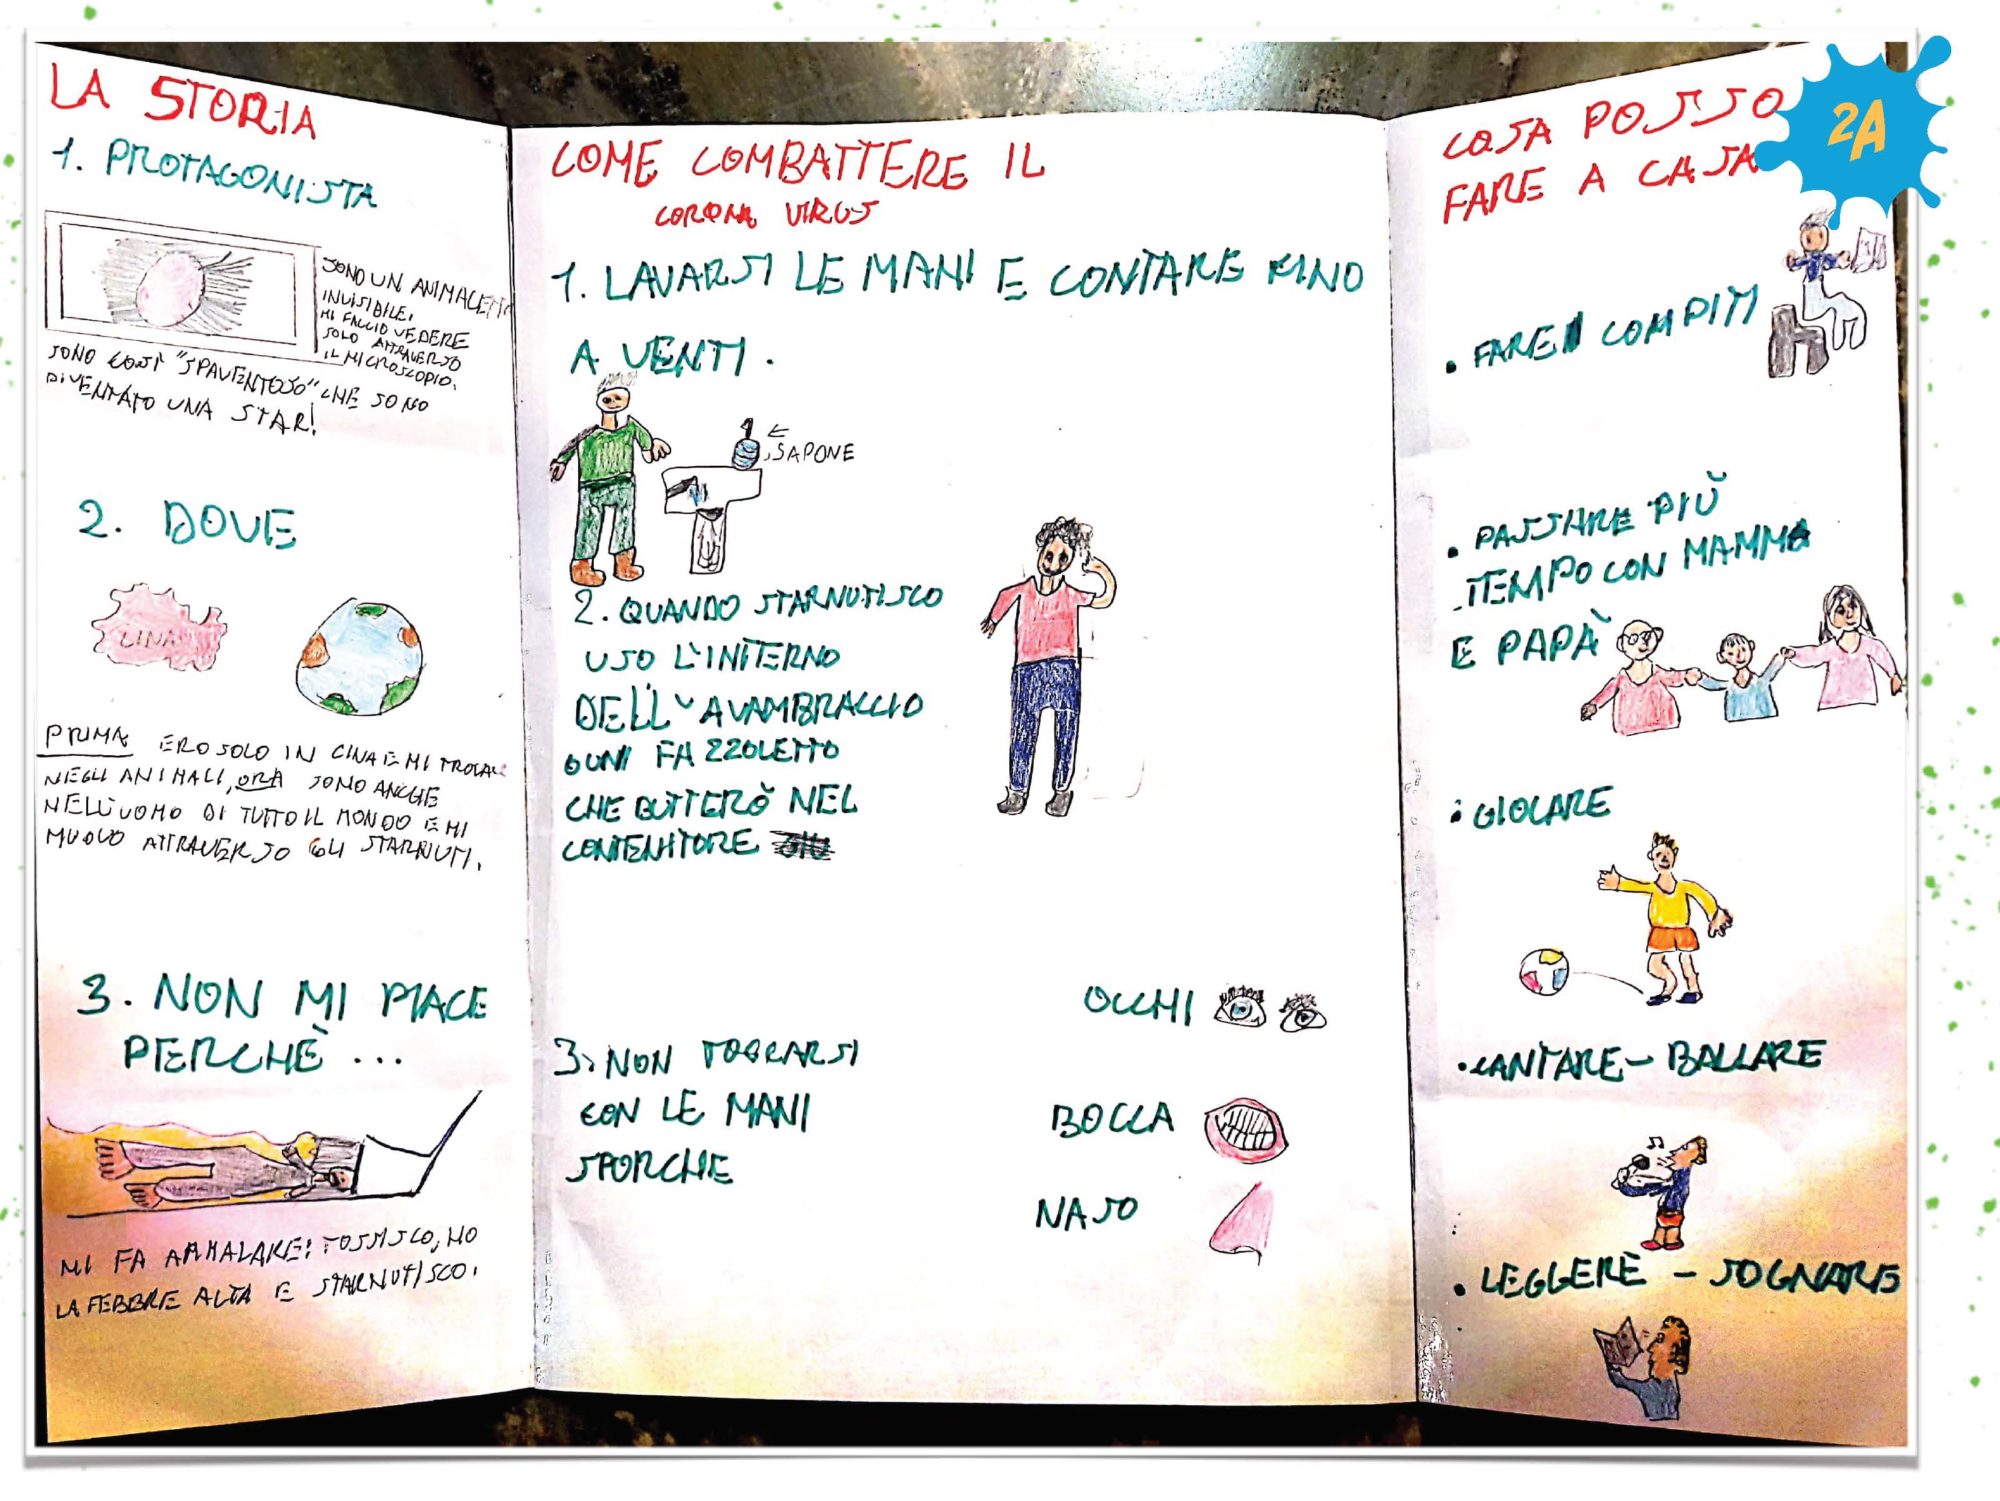 LA STORIA
1. PROTAGONISTA
SONO UN ANIMALETT
INVISIBILE.
MI FACCIO VEDERE
SOLO ATTRAVERSO
IL MICROSCOPIO.
SONO COSÌ "SPAVENTOSO" CHE SONO
DIVENTATO UNA STAR!
2. DOVE
CINA
PRIMA ERO SOLO IN CINA E MI TROVAV
NEGLI ANIMALI, ORA SONO ANCHE
NELL'UOMO DI TUTTO IL MONDO E MI
MUOVO ATTRAVERSO GLI STARNUTI.
3. NON MI PIACE
PERCHÈ ...
MI FA AMMALARE: TOSSISCO, HO
LA FEBBRE ALTA E STARNUTISCO.
COME COMBATTERE IL
CORONA VIRUS
1. LAVARSI LE MANI E CONTARE FINO
A VENTI.
SAPONE
2. QUANDO STARNUTISCO
USO L'INTERNO
DELL'AVAMBRACCIO
OGNI FAZZOLETTO
CHE BUTTERÒ NEL
CONTENITORE
3. NON TOCCARSI
CON LE MANI
SPORCHE
OCCHI
BOCCA
NASO
COSA POSSO
FARE A CASA
• FARE I COMPITI
• PASSARE PIÙ
TEMPO CON MAMMA
E PAPÀ
• GIOCARE
• CANTARE - BALLARE
• LEGGERE - SOGNARE
2A